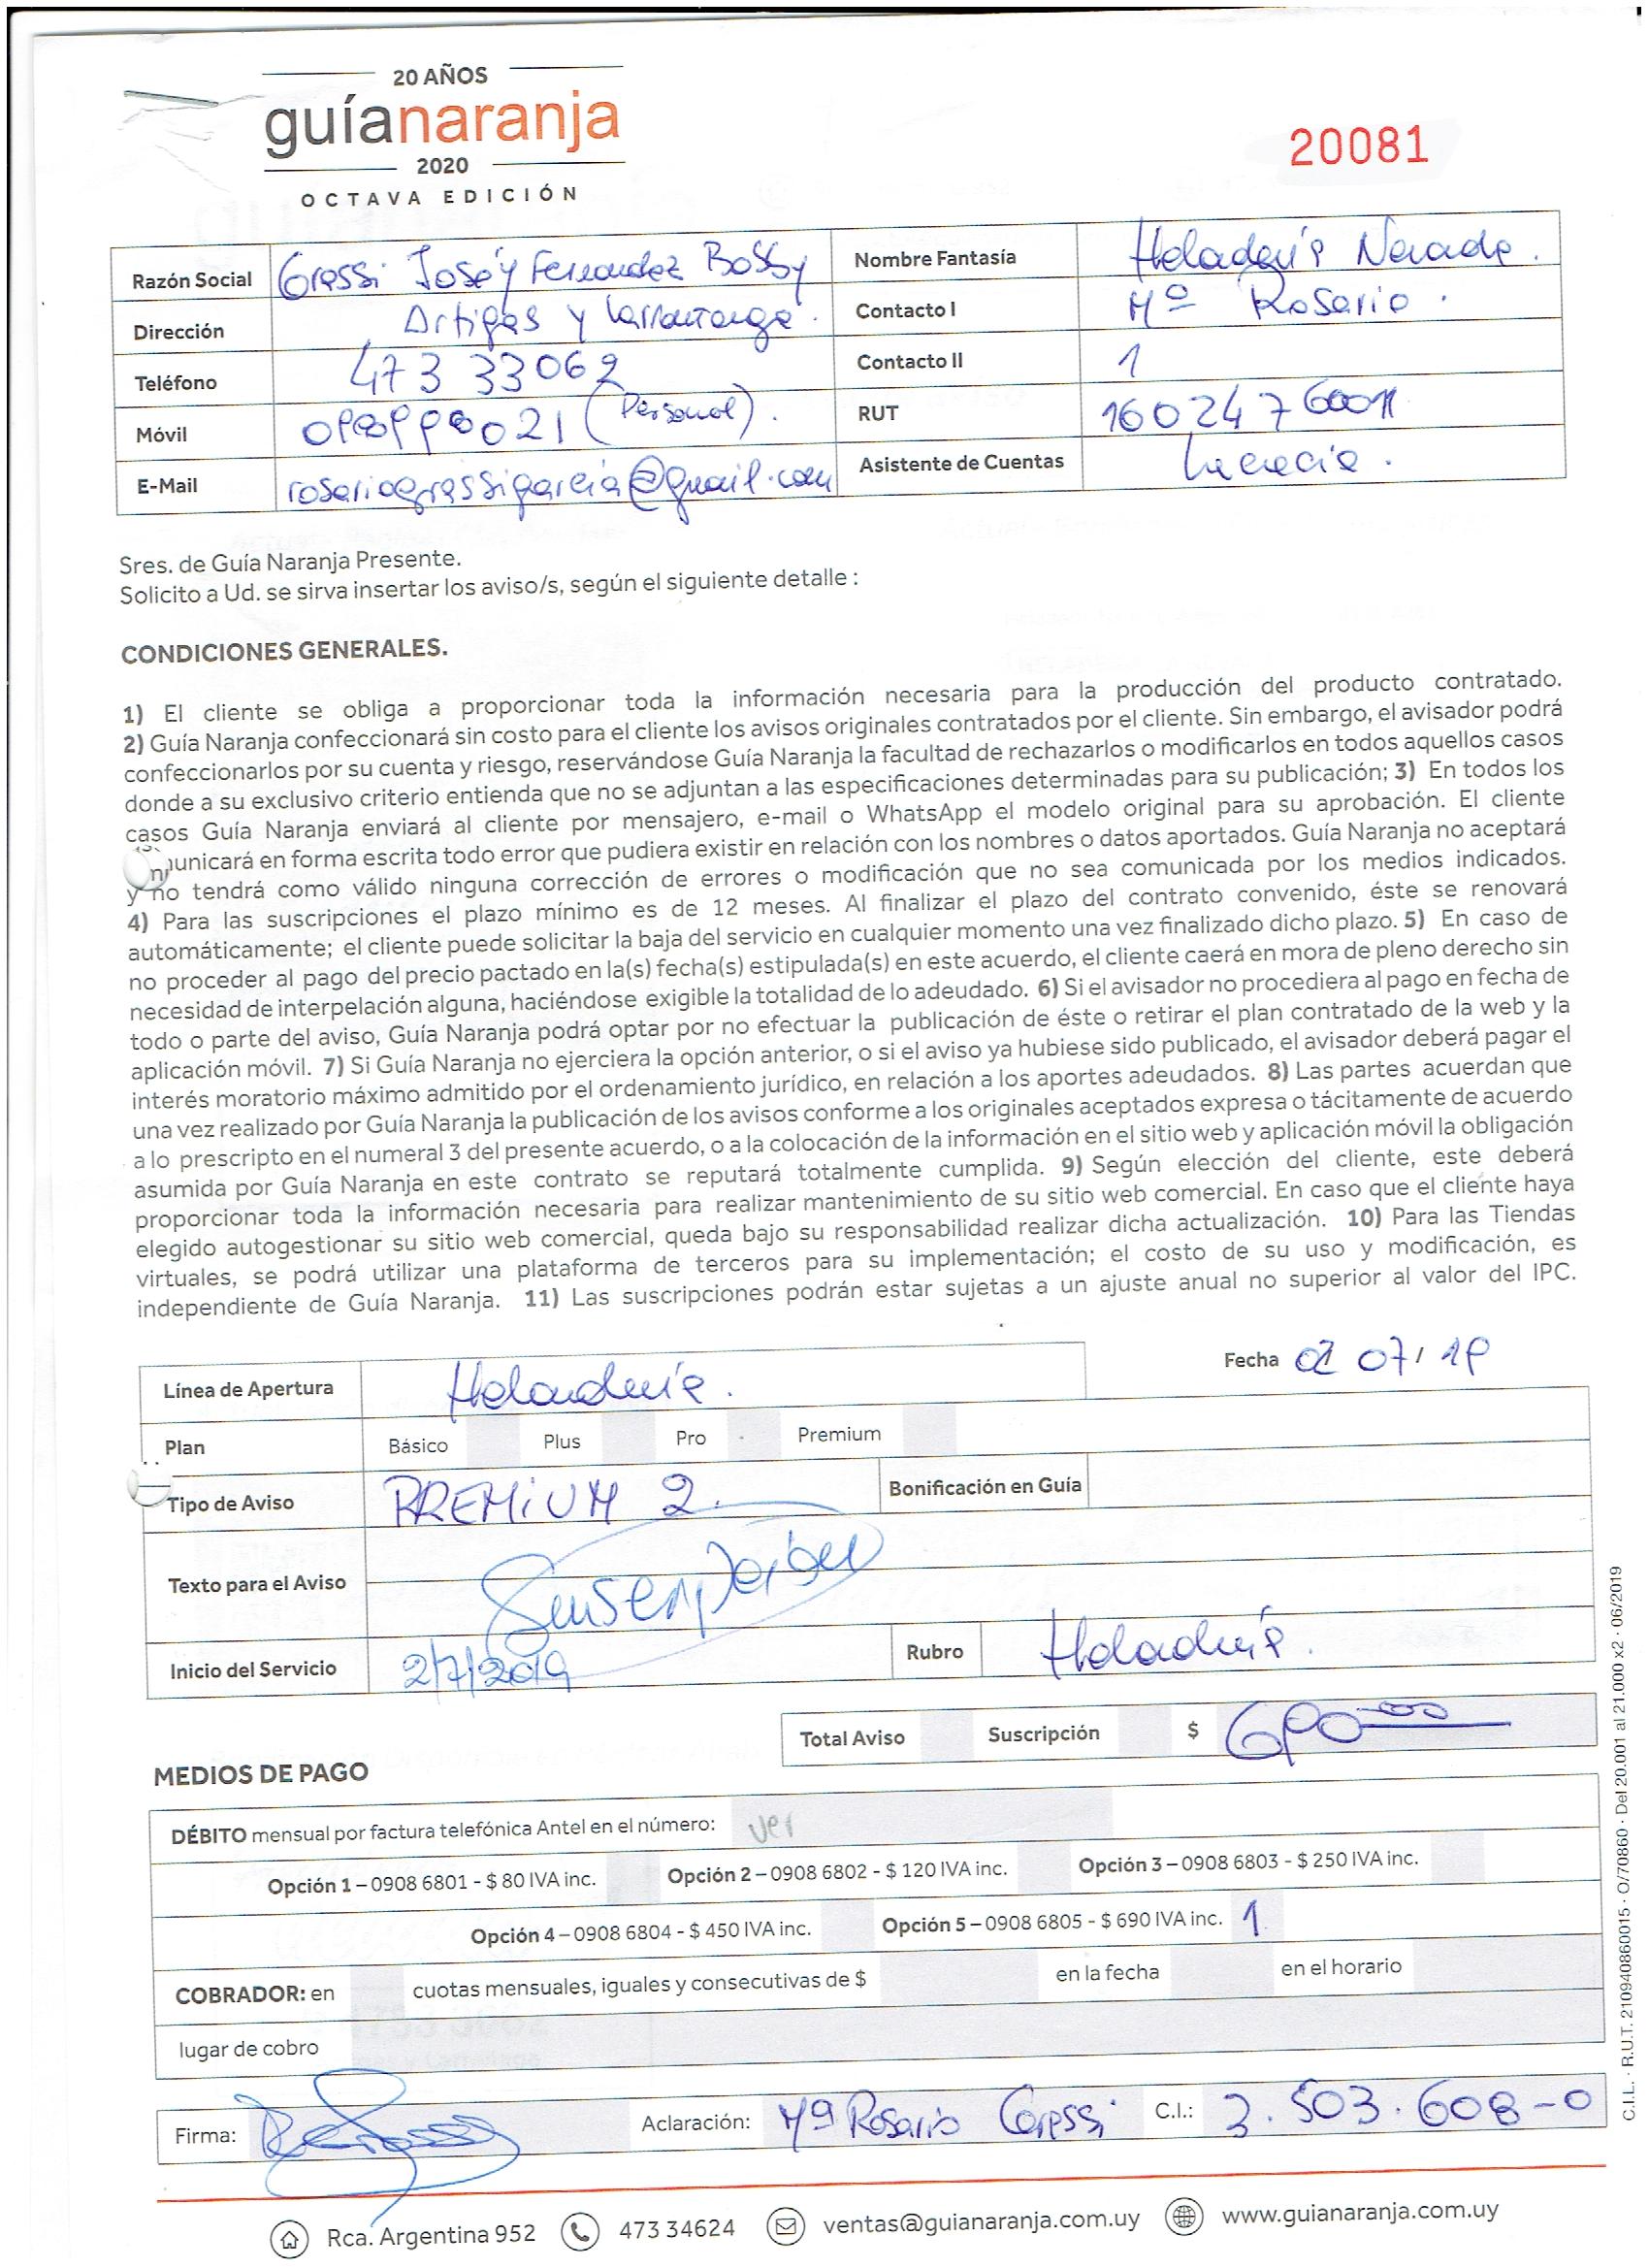 20 AÑOS
guíanaranja
2020
OCTAVA EDICIÓN
20081
Razón Social Grassi José y Fernandez Bobby Nombre Fantasía Heladería Nevada.
Dirección Artigas y Larrañaga. Contacto I Mª Rosario.
Teléfono 473 33062 Contacto II 1
Móvil (Personal). RUT 160247660011
E-Mail rosariograssigarcia@gmail.com Asistente de Cuentas
Sres. de Guía Naranja Presente.
Solicito a Ud. se sirva insertar los aviso/s, según el siguiente detalle :
CONDICIONES GENERALES.
1) El cliente se obliga a proporcionar toda la información necesaria para la producción del producto contratado.
2) Guía Naranja confeccionará sin costo para el cliente los avisos originales contratados por el cliente. Sin embargo, el avisador podrá
confeccionarlos por su cuenta y riesgo, reservándose Guía Naranja la facultad de rechazarlos o modificarlos en todos aquellos casos
donde a su exclusivo criterio entienda que no se adjuntan a las especificaciones determinadas para su publicación; 3) En todos los
casos Guía Naranja enviará al cliente por mensajero, e-mail o WhatsApp el modelo original para su aprobación. El cliente
municará en forma escrita todo error que pudiera existir en relación con los nombres o datos aportados. Guía Naranja no aceptará
y no tendrá como válido ninguna corrección de errores o modificación que no sea comunicada por los medios indicados.
4) Para las suscripciones el plazo mínimo es de 12 meses. Al finalizar el plazo del contrato convenido, éste se renovará
automáticamente; el cliente puede solicitar la baja del servicio en cualquier momento una vez finalizado dicho plazo. 5) En caso de
no proceder al pago del precio pactado en la(s) fecha(s) estipulada(s) en este acuerdo, el cliente caerá en mora de pleno derecho sin
necesidad de interpelación alguna, haciéndose exigible la totalidad de lo adeudado. 6) Si el avisador no procediera al pago en fecha de
todo o parte del aviso, Guía Naranja podrá optar por no efectuar la publicación de éste o retirar el plan contratado de la web y la
aplicación móvil. 7) Si Guía Naranja no ejerciera la opción anterior, o si el aviso ya hubiese sido publicado, el avisador deberá pagar el
interés moratorio máximo admitido por el ordenamiento jurídico, en relación a los aportes adeudados. 8) Las partes acuerdan que
una vez realizado por Guía Naranja la publicación de los avisos conforme a los originales aceptados expresa o tácitamente de acuerdo
a lo prescripto en el numeral 3 del presente acuerdo, o a la colocación de la información en el sitio web y aplicación móvil la obligación
asumida por Guía Naranja en este contrato se reputará totalmente cumplida. 9) Según elección del cliente, este deberá
proporcionar toda la información necesaria para realizar mantenimiento de su sitio web comercial. En caso que el cliente haya
elegido autogestionar su sitio web comercial, queda bajo su responsabilidad realizar dicha actualización. 10) Para las Tiendas
virtuales, se podrá utilizar una plataforma de terceros para su implementación; el costo de su uso y modificación, es
independiente de Guía Naranja. 11) Las suscripciones podrán estar sujetas a un ajuste anual no superior al valor del IPC.
Fecha 02 07/19
Línea de Apertura Heladería.
Plan Básico Plus Pro Premium
Tipo de Aviso PREMIUM 2. Bonificación en Guía
Texto para el Aviso
Inicio del Servicio 2/7/2019 Rubro Heladería.
Total Aviso Suscripción $ 690.00
MEDIOS DE PAGO
DÉBITO mensual por factura telefónica Antel en el número: ver
Opción 1 – 0908 6801 - $ 80 IVA inc. Opción 2 – 0908 6802 - $ 120 IVA inc. Opción 3 – 0908 6803 - $ 250 IVA inc.
Opción 4 – 0908 6804 - $ 450 IVA inc. Opción 5 – 0908 6805 - $ 690 IVA inc. 1
COBRADOR: en cuotas mensuales, iguales y consecutivas de $ en la fecha en el horario
lugar de cobro
Firma: Aclaración: Mª Rosario Grassi C.I.: 3.503.608-0
Rca. Argentina 952 473 34624 ventas@guianaranja.com.uy www.guianaranja.com.uy
C.I.L. · R.U.T. 210940860015 · O/70860 · Del 20.001 al 21.000 x2 · 06/2019